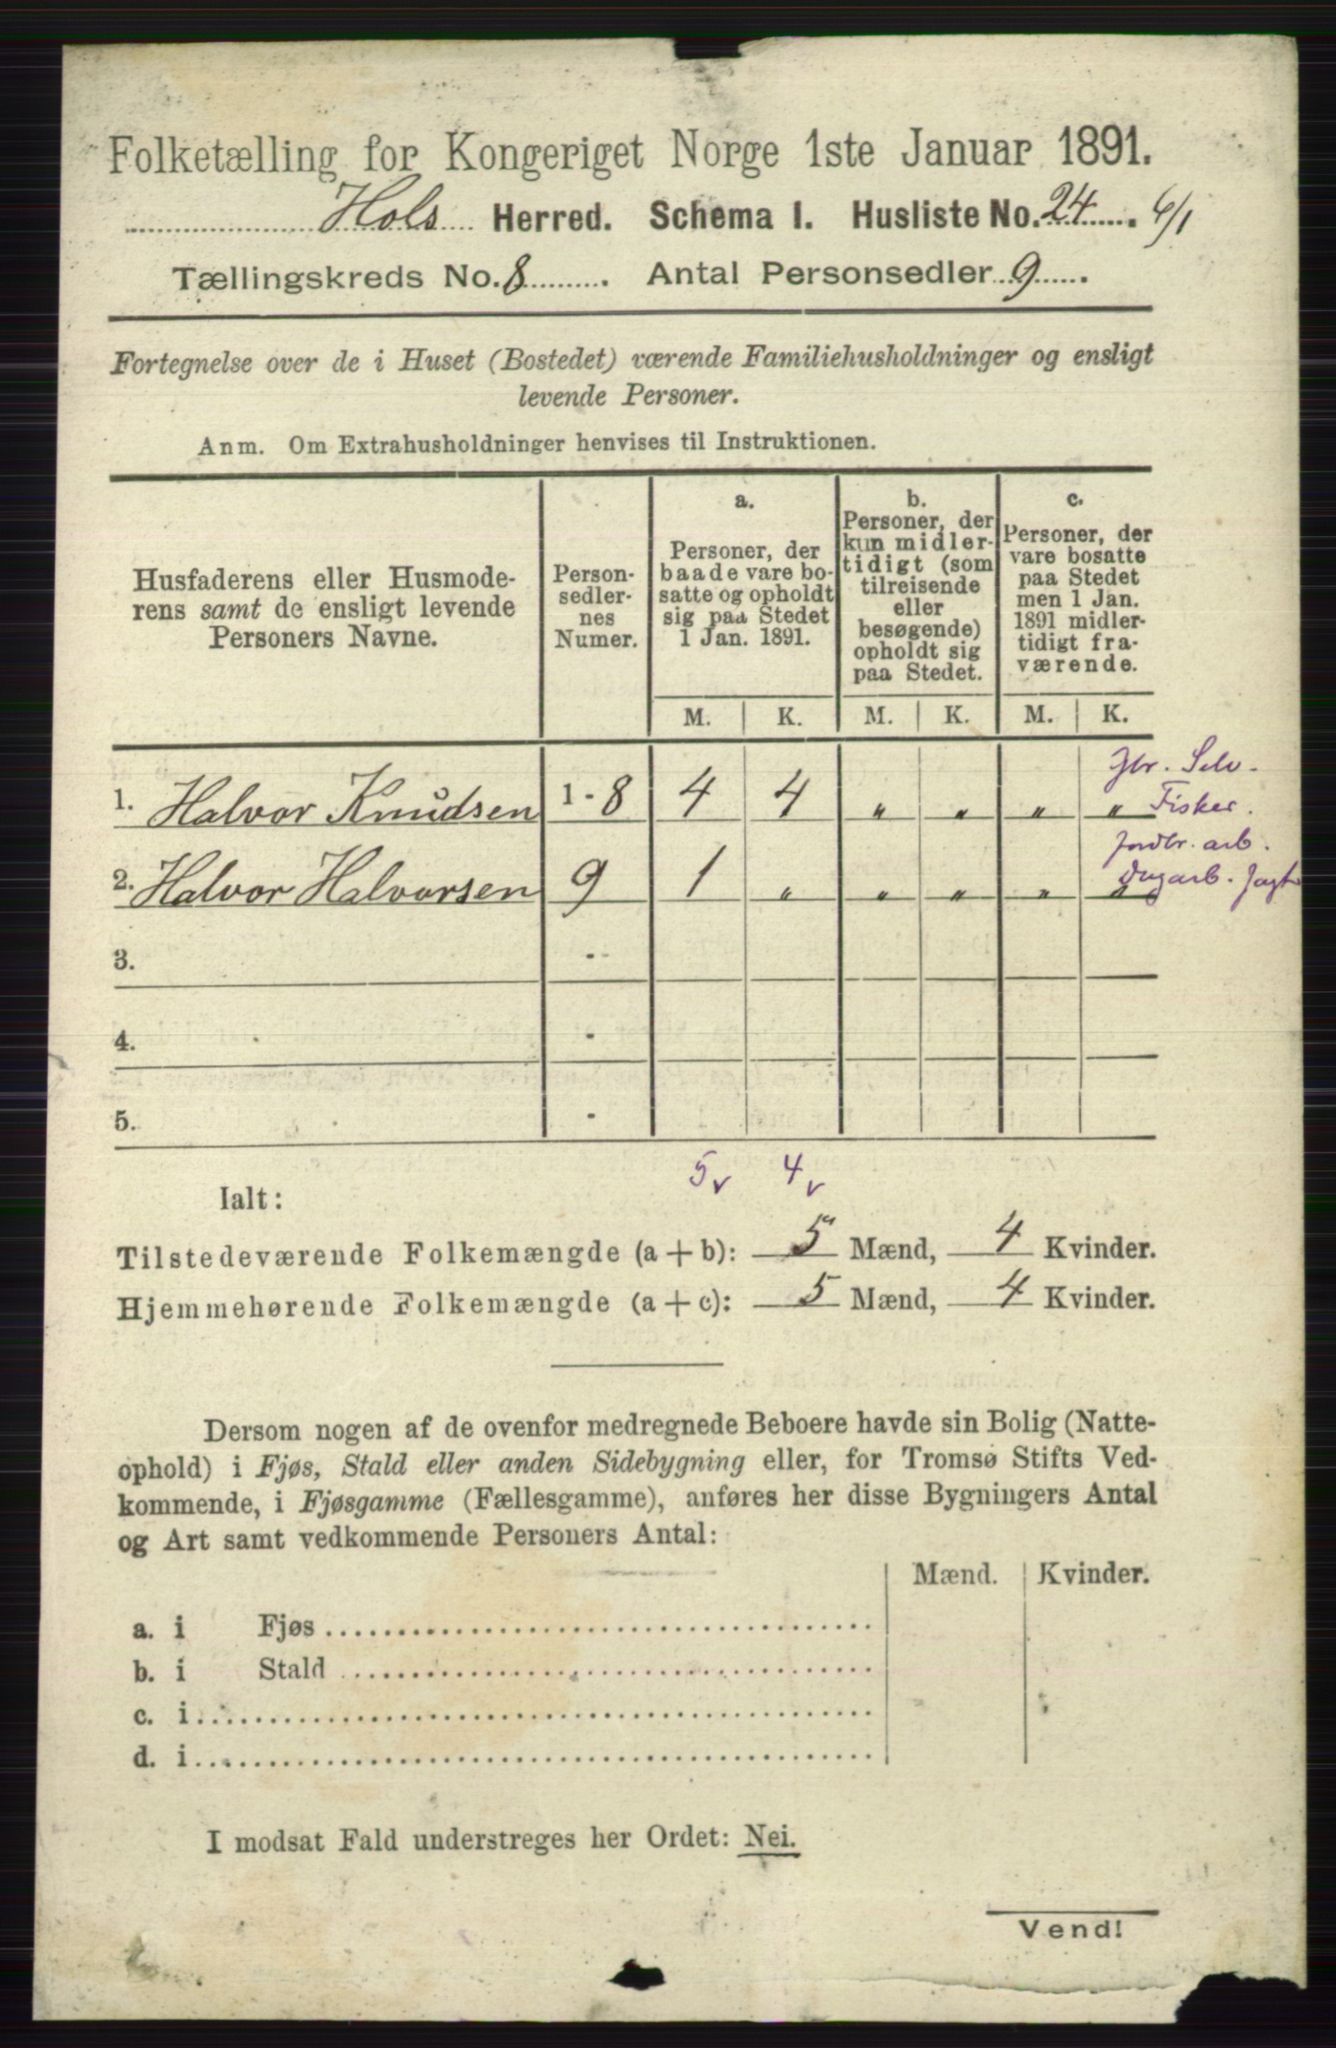 Folketælling for Kongeriget Norge 1ste Januar 1891.
Hols Herred. Schema I. Husliste No. 24. 6/1
Tællingskreds No. 8. Antal Personsedler 9.
Fortegnelse over de i Huset (Bostedet) værende Familiehusholdninger og ensligt
levende Personer.
Anm. Om Extrahusholdninger henvises til Instruktionen.
Husfaderens eller Husmode-
rens samt de ensligt levende
Personers Navne.
Person-
sedler-
nes
Numer.
a.
Personer, der
baade vare bo-
satte og opholdt
sig paa Stedet
1 Jan. 1891.
b.
Personer, der
kun midler-
tidigt (som
tilreisende
eller
besøgende)
opholdt sig
paa Stedet.
c.
Personer, der
vare bosatte
paa Stedet
men 1 Jan.
1891 midler-
tidigt fra-
værende.
M. K. M. K. M. K.
Jbr. Selv.
1. Halvor Knudsen 1 - 8 4 4 „ „ „ „ Fisker.
Jordbr. arb.
2. Halvor Halvorsen 9 1 „ „ „ „ „ Dagarb. Jagt
3. -
4. -
5. -
5 v 4 v
Ialt:
Tilstedeværende Folkemængde (a + b): 5 Mænd, 4 Kvinder.
Hjemmehørende Folkemængde (a + c): 5 Mænd, 4 Kvinder.
Dersom nogen af de ovenfor medregnede Beboere havde sin Bolig (Natte-
ophold) i Fjøs, Stald eller anden Sidebygning eller, for Tromsø Stifts Ved-
kommende, i Fjøsgamme (Fællesgamme), anføres her disse Bygningers Antal
og Art samt vedkommende Personers Antal:
Mænd. Kvinder.
a. i Fjøs
b. i Stald
c. i
d. i
I modsat Fald understreges her Ordet: Nei.
Vend!